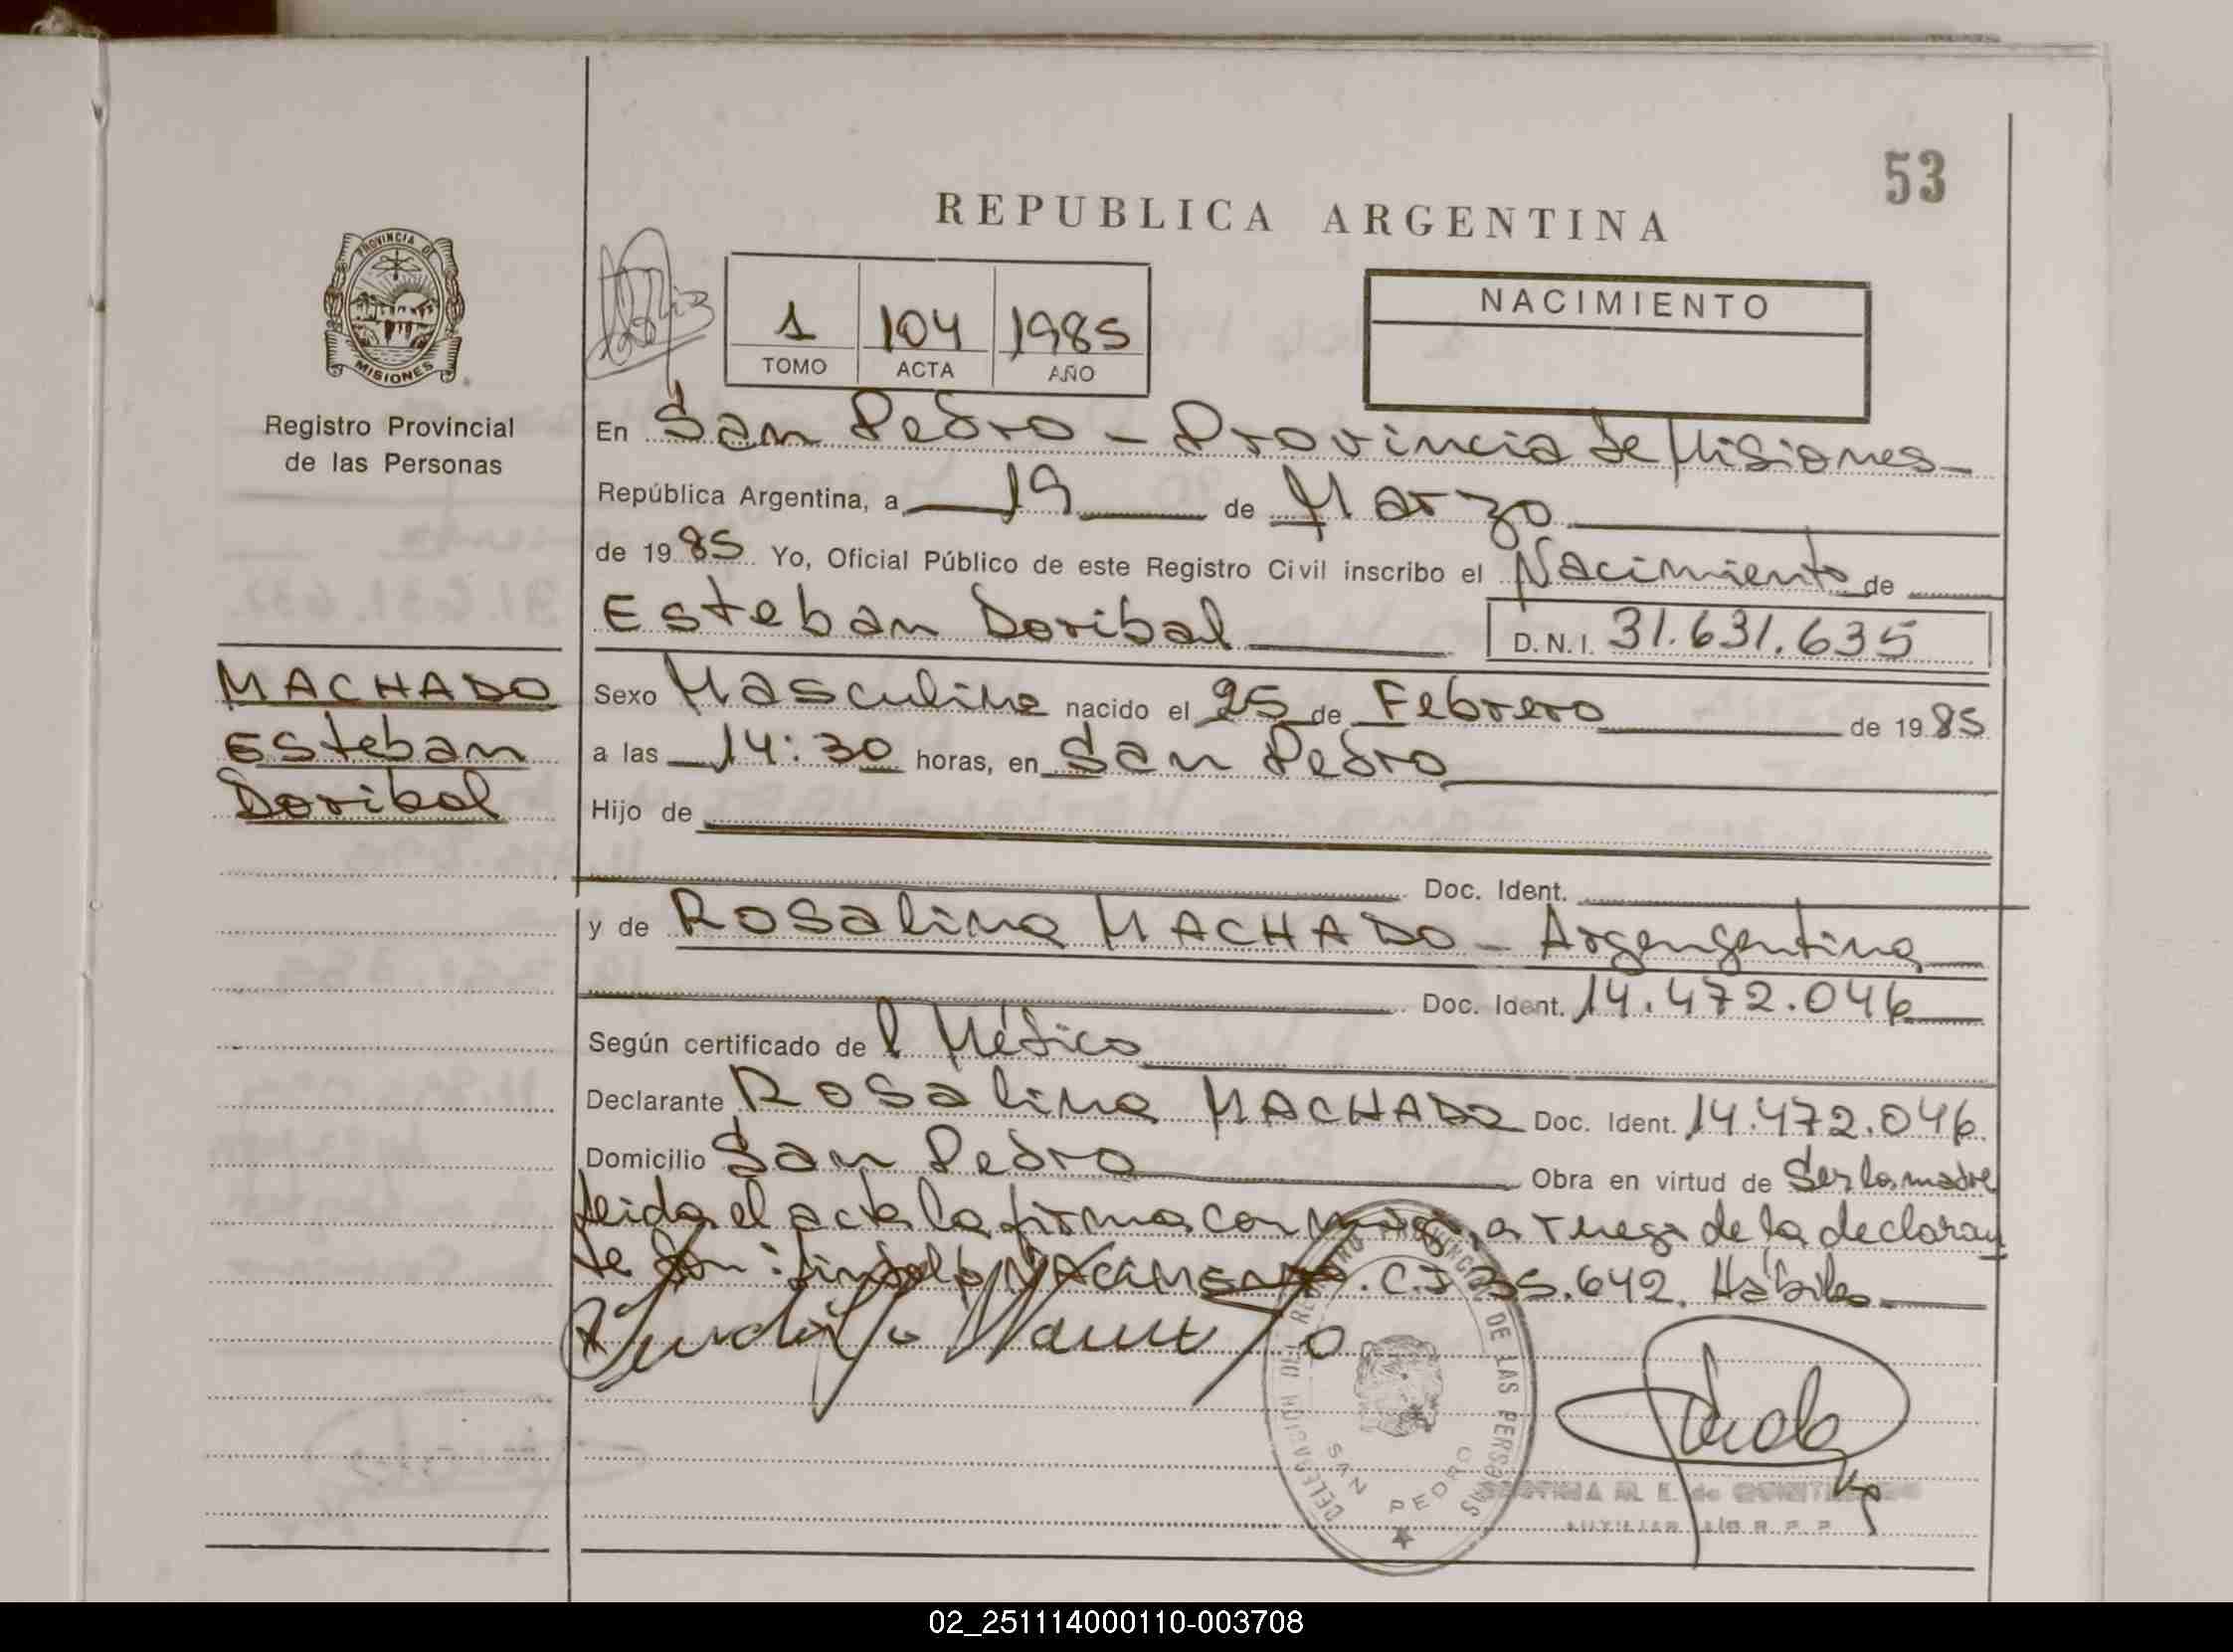 53
REPUBLICA ARGENTINA
PROVINCIA DE
MISIONES
Registro Provincial
de las Personas
1 104 1985
TOMO ACTA AÑO
NACIMIENTO
En San Pedro - Provincia de Misiones
República Argentina, a 19 de Marzo
de 1985 Yo, Oficial Público de este Registro Civil inscribo el Nacimiento de
Esteban Doribal D.N.I. 31.631.635
MACHADO
Esteban
Doribal
Sexo Masculino nacido el 25 de Febrero de 1985
a las 14:30 horas, en San Pedro
Hijo de
Doc. Ident.
y de Rosalina MACHADO - Argengentina
Doc. Ident. 14.472.046
Según certificado del Médico
Declarante Rosalina MACHADO Doc. Ident. 14.472.046
Domicilio San Pedro Obra en virtud de Ser la madre
Leida el acta la firma con migo, a ruego de la declaran
te Don: C.I 35.642. Hábiles
DELEGACION DEL REGISTRO PROVINCIAL DE LAS PERSONAS
SAN PEDRO
02_251114000110-003708